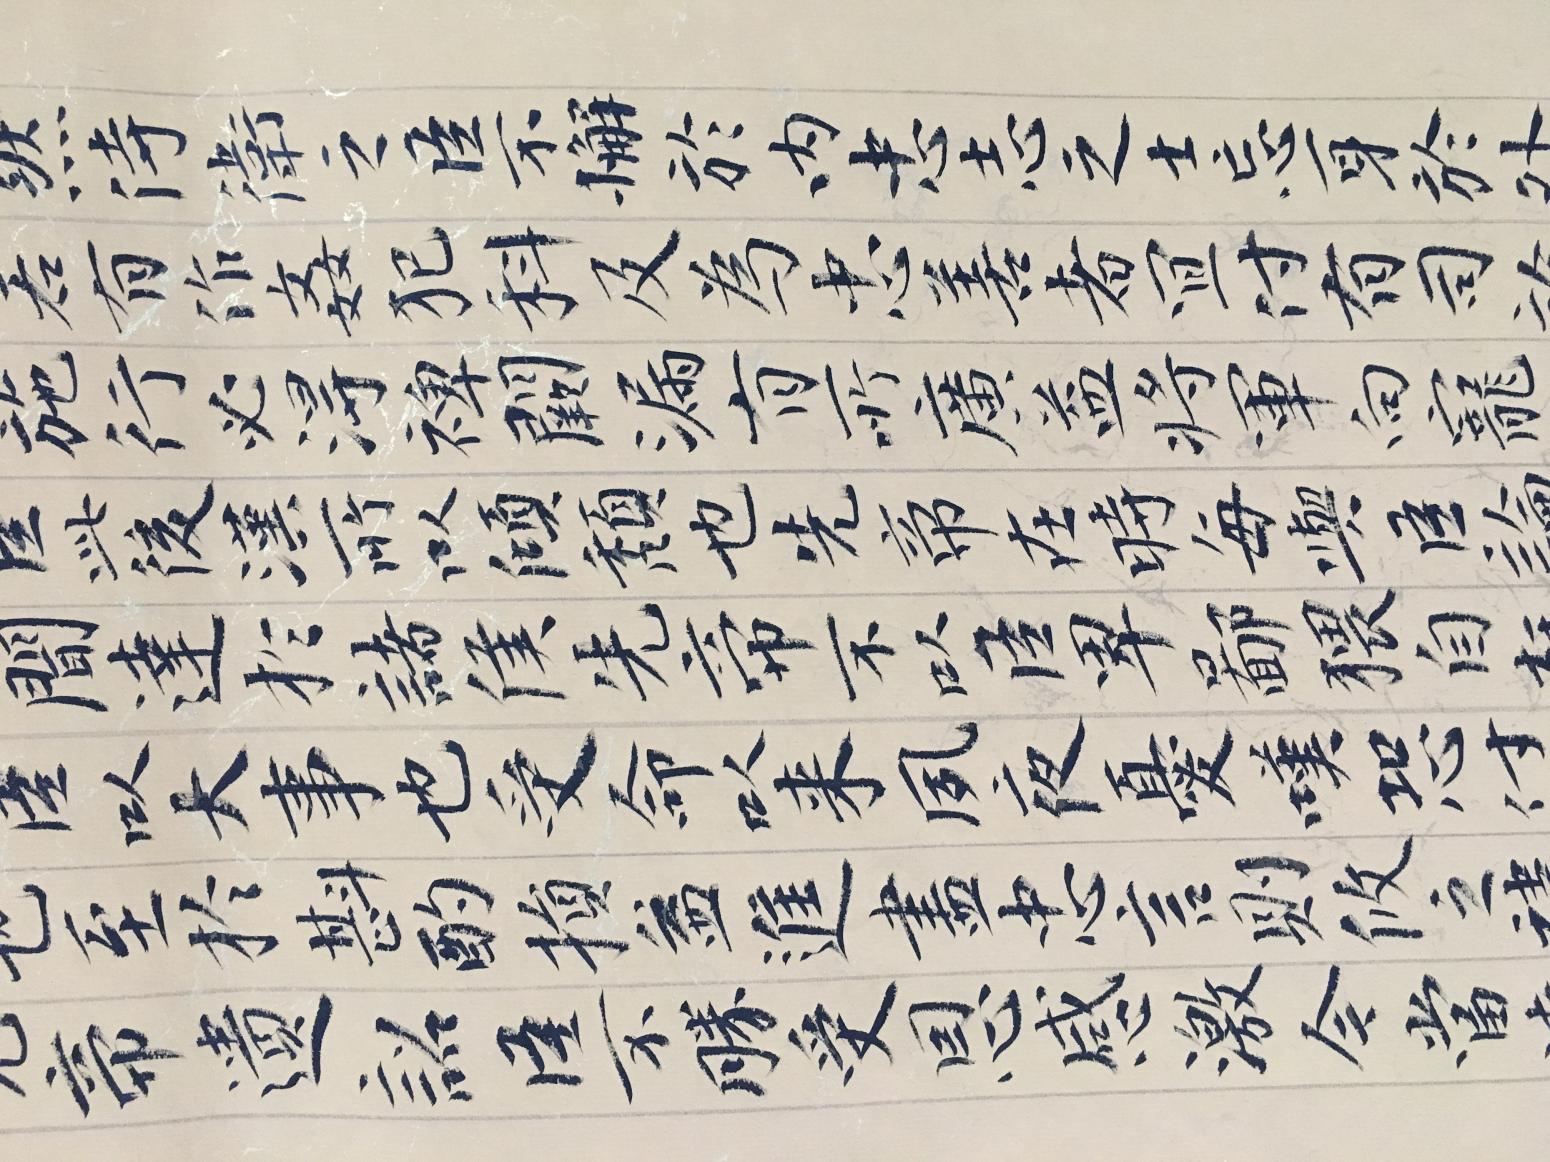 然侍衛之臣不懈於内忠志之士忘身於外
若有作姦犯科及為忠善者宜付有司論
施行必得裨闕漏有所廣益將軍向寵
臣此後漢所以傾頹也先帝在時每與臣論
聞達於諸侯先帝不以臣卑鄙猥自枉
臣以大事也受命以來夙夜憂嘆恐付
也至於斟酌損益進盡忠言則攸之禕
先帝遺詔臣不勝受恩感激今當遠